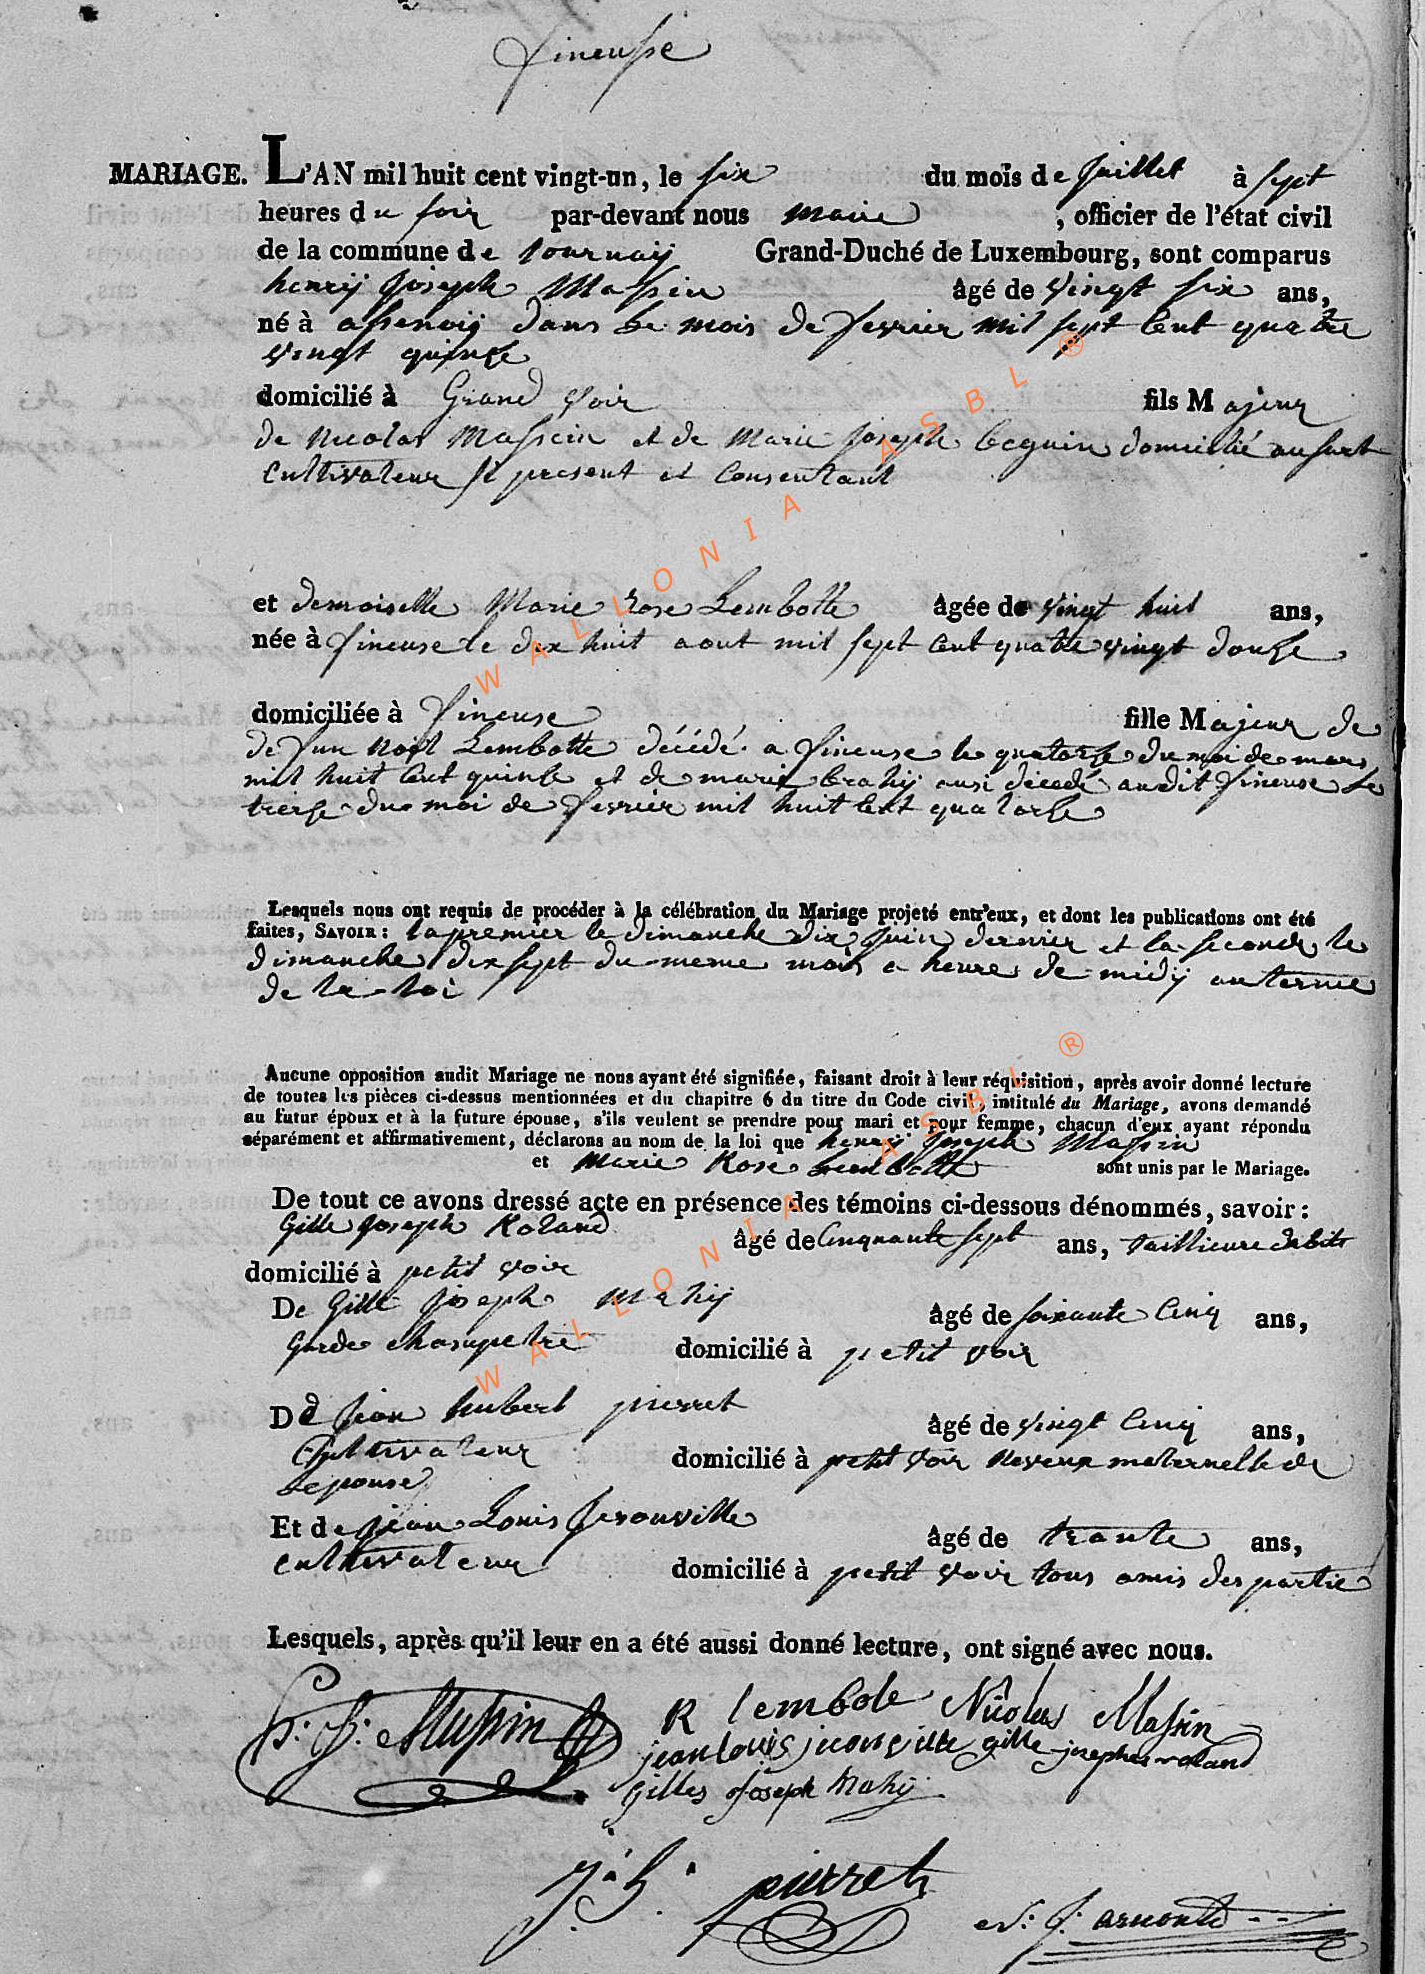 fineuse
MARIAGE. L'AN mil huit cent vingt-un, le six du mois de juillet à sept
heures du soir par-devant nous maire , officier de l'état civil
de la commune de tournay Grand-Duché de Luxembourg, sont comparus
henry Joseph Massin âgé de vingt six ans,
né à assenois dans le mois de fevrier mil sept cent quatre
vingt quinze
domicilié à Grand voir fils Majeur
de Nicolas Massin et de Marie Joseph domicilié au sart
Cultivateur present et consentant
et demoiselle Marie rose Lembotte âgée de vingt huit ans,
née à fineuse le dix huit aout mil sept cent quatre vingt douze
domiciliée à fineuse fille Majeur de
de Noël Lembotte décédé a fineuse le quatorze du moi de mars
mil huit cent quinze et de marie ausi décédé audit fineuse le
treize du moi de fevrier mil huit cent quatorze
Lesquels nous ont requis de procéder à la célébration du Mariage projeté entr'eux, et dont les publications ont été
faites, SAVOIR : la premier le dimanche dix juin dernier et la seconde le
dimanche dix sept du meme mois a heure de midy au terme
de la loi
Aucune opposition audit Mariage ne nous ayant été signifiée, faisant droit à leur réquisition, après avoir donné lecture
de toutes les pièces ci-dessus mentionnées et du chapitre 6 du titre du Code civil, intitulé du Mariage, avons demandé
au futur époux et à la future épouse, s'ils veulent se prendre pour mari et pour femme, chacun d'eux ayant répondu
séparément et affirmativement, déclarons au nom de la loi que henry Joseph Massin
et Marie Rose Lembotte sont unis par le Mariage.
De tout ce avons dressé acte en présence des témoins ci-dessous dénommés, savoir :
Gille Joseph Roland âgé de Cinquante sept ans, taillieure dabits
domicilié à petit voir
De Gille Joseph Mahy âgé de soixante Cinq ans,
Garde champetre domicilié à petit voir
De Jean hubert pierret âgé de vingt Cinq ans,
Cultivateur domicilié à petit voir Neveux maternelle de
Lepouse
Et de jean Louis Jerouville âgé de trante ans,
Cultivateur domicilié à petit voir tous amis des partie
Lesquels, après qu'il leur en a été aussi donné lecture, ont signé avec nous.
h: J: Massin R lembote Nicolas Massin
jean louis gille joseph roland
Gilles Joseph Mahy
J: h: pierret
WALLONIA ASBL ®
WALLONIA ASBL ®